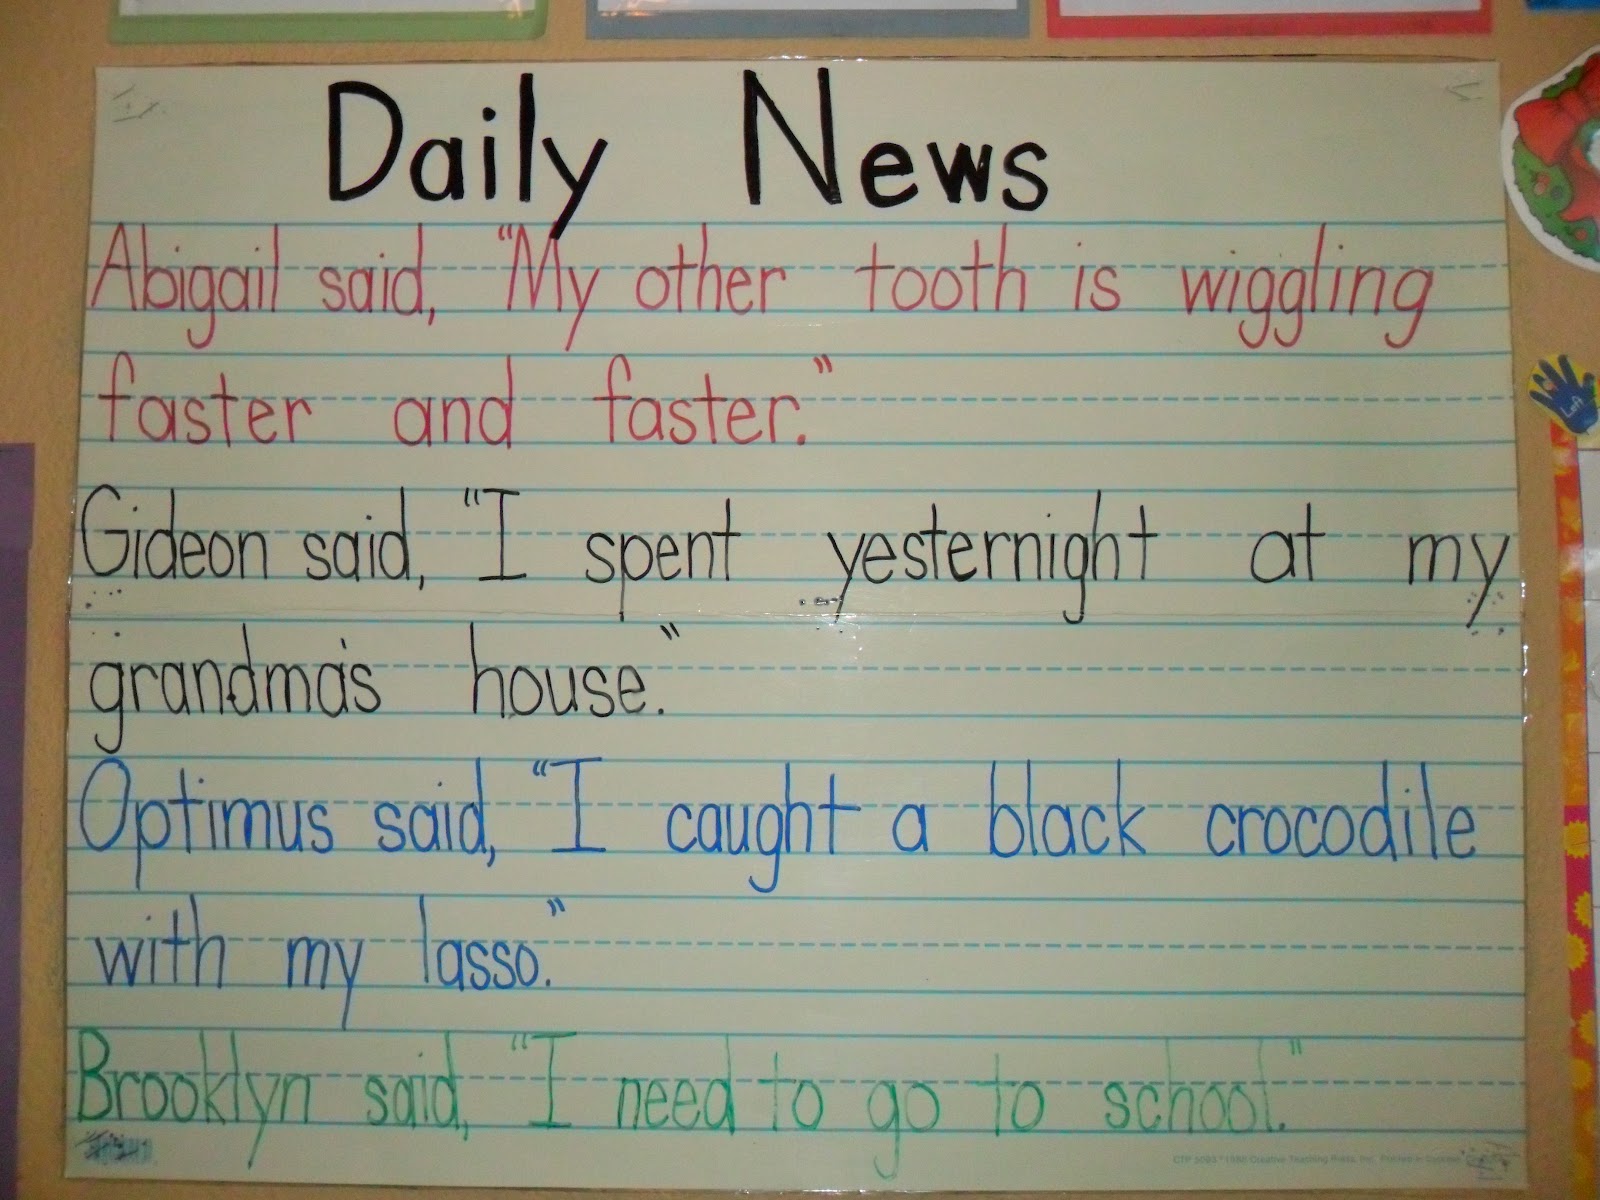 Daily News
Abigail said, “My other tooth is wiggling
faster and faster.”
Gideon said, “I spent yesternight at my
grandma's house.”
Optimus said, “I caught a black crocodile
with my lasso.”
Brooklyn said, “I need to go to school.”
Left